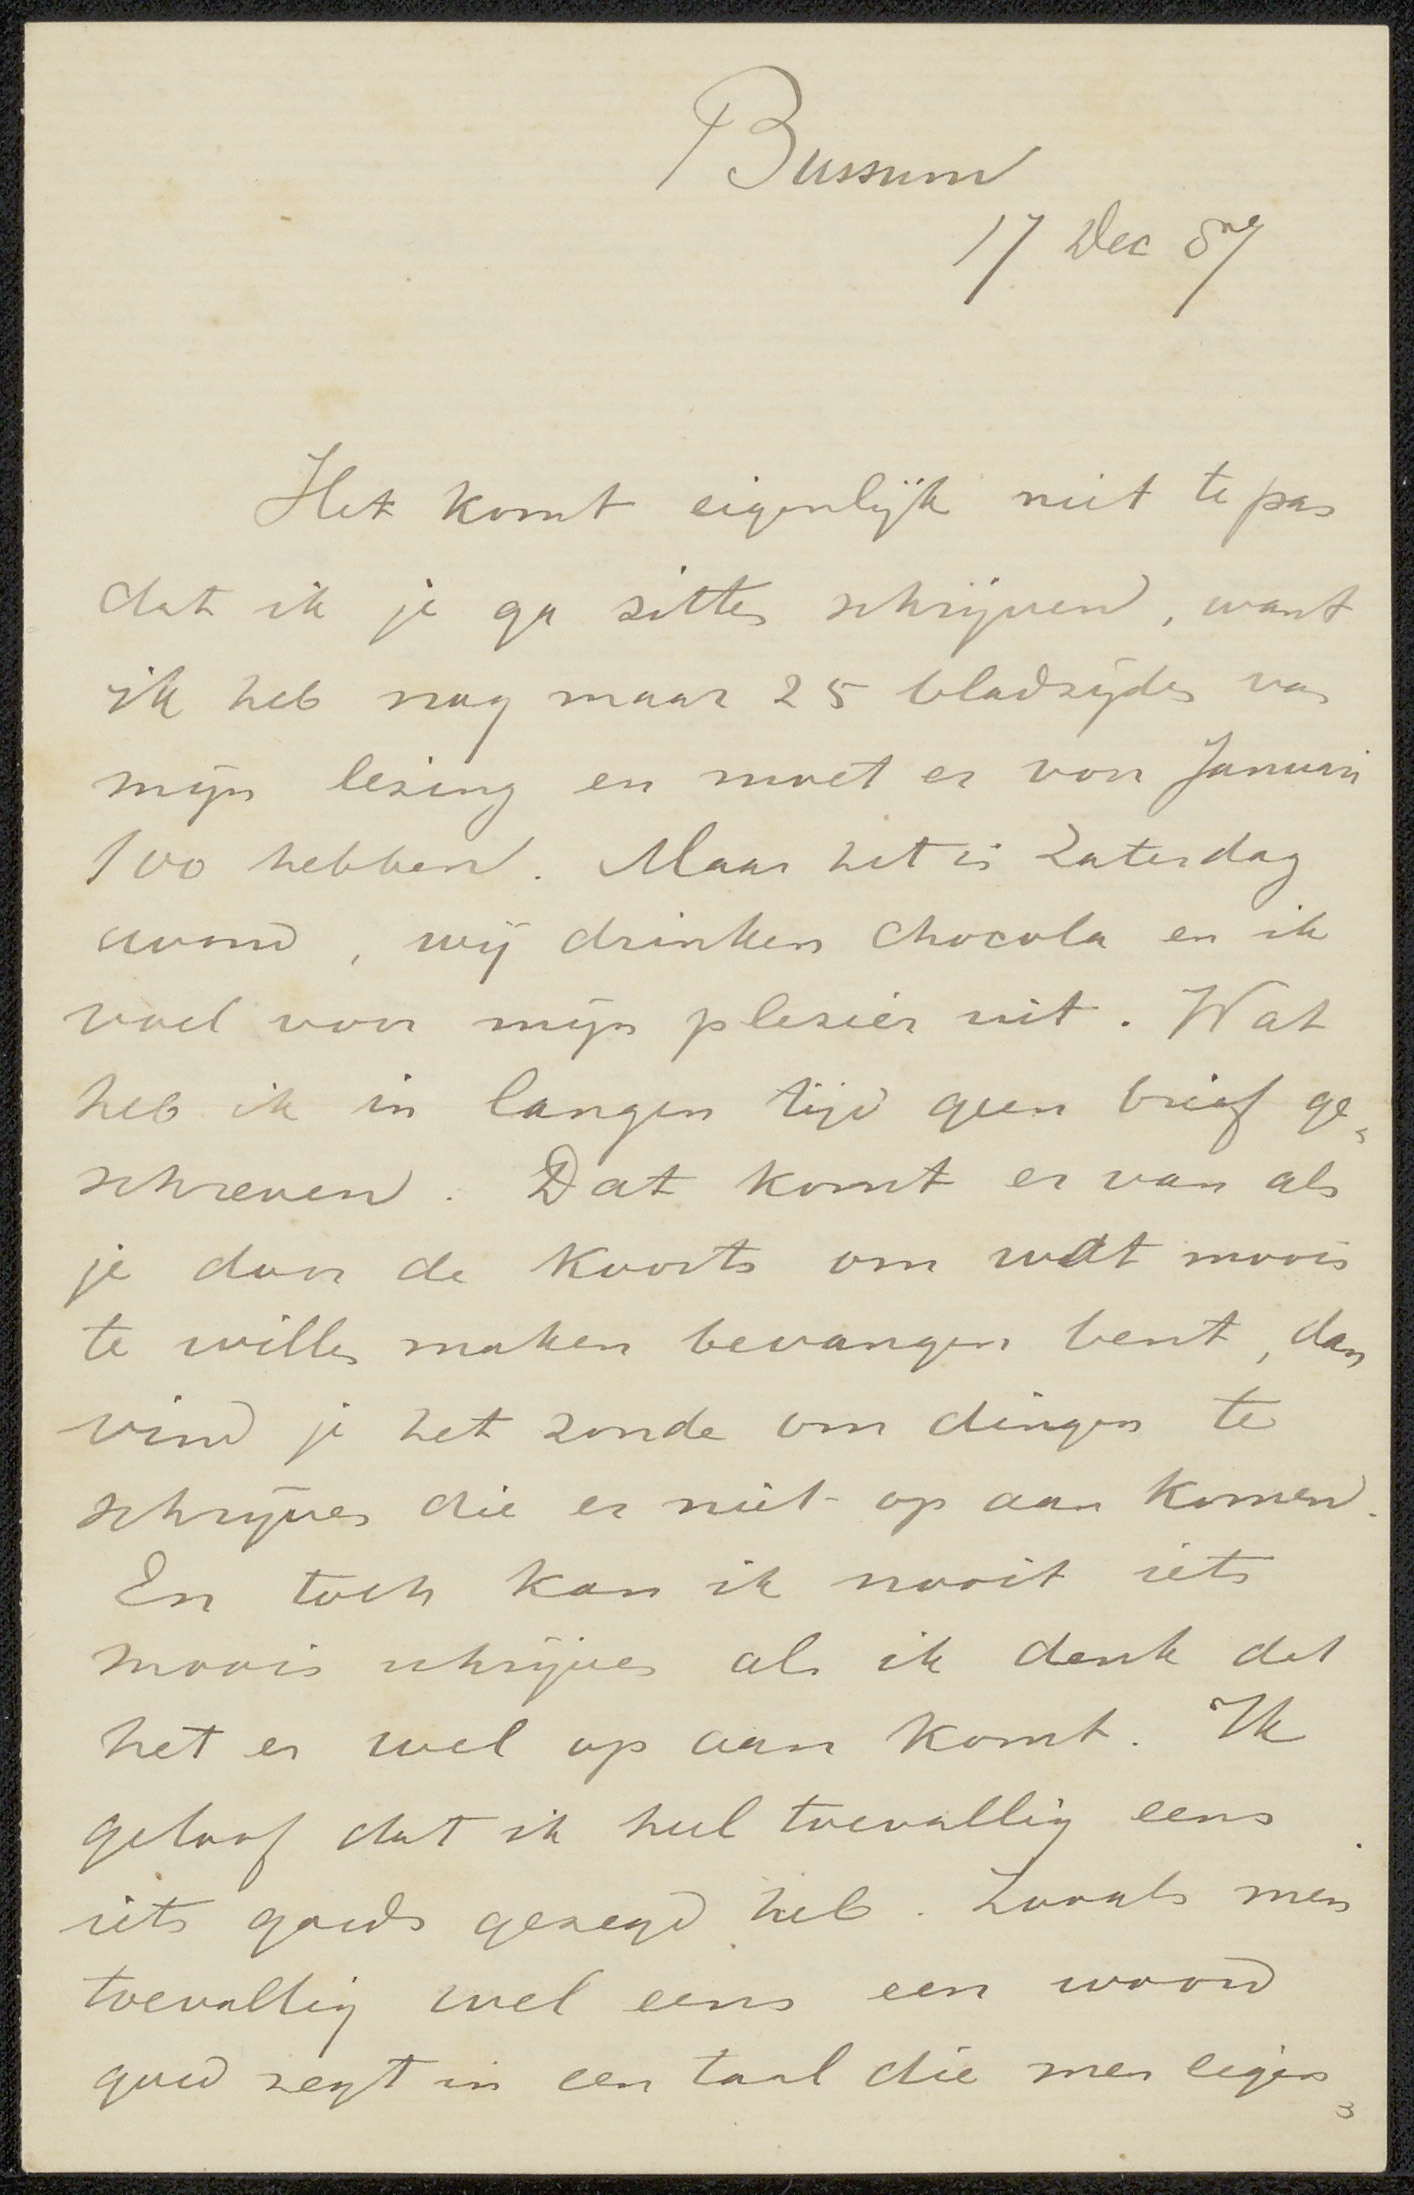 Bussum
17 Dec 87
Het komt eigenlijk niet te pas
dat ik je ga zitten schrijven, want
ik heb nog maar 25 bladzijden van
mijn lezing en moet er voor Januari
100 hebben. Maar het is Zaterdag
avond, wij drinken chocola en ik
voel voor mijn plezier uit. Wat
heb ik in langen tijd geen brief ge-
schreven. Dat komt er van als
je door de koorts om wat moois
te willen maken bevangen bent, dan
vind je het zonde om dingen te
schrijven die er niet op aan komen.
En toch kan ik nooit iets
moois schrijven als ik denk dat
het er wel op aan komt. Ik
geloof dat ik heel toevallig eens
iets goeds gezegd heb. Zooals men
toevallig wel eens een woord
goed zegt in een taal die men eigen-